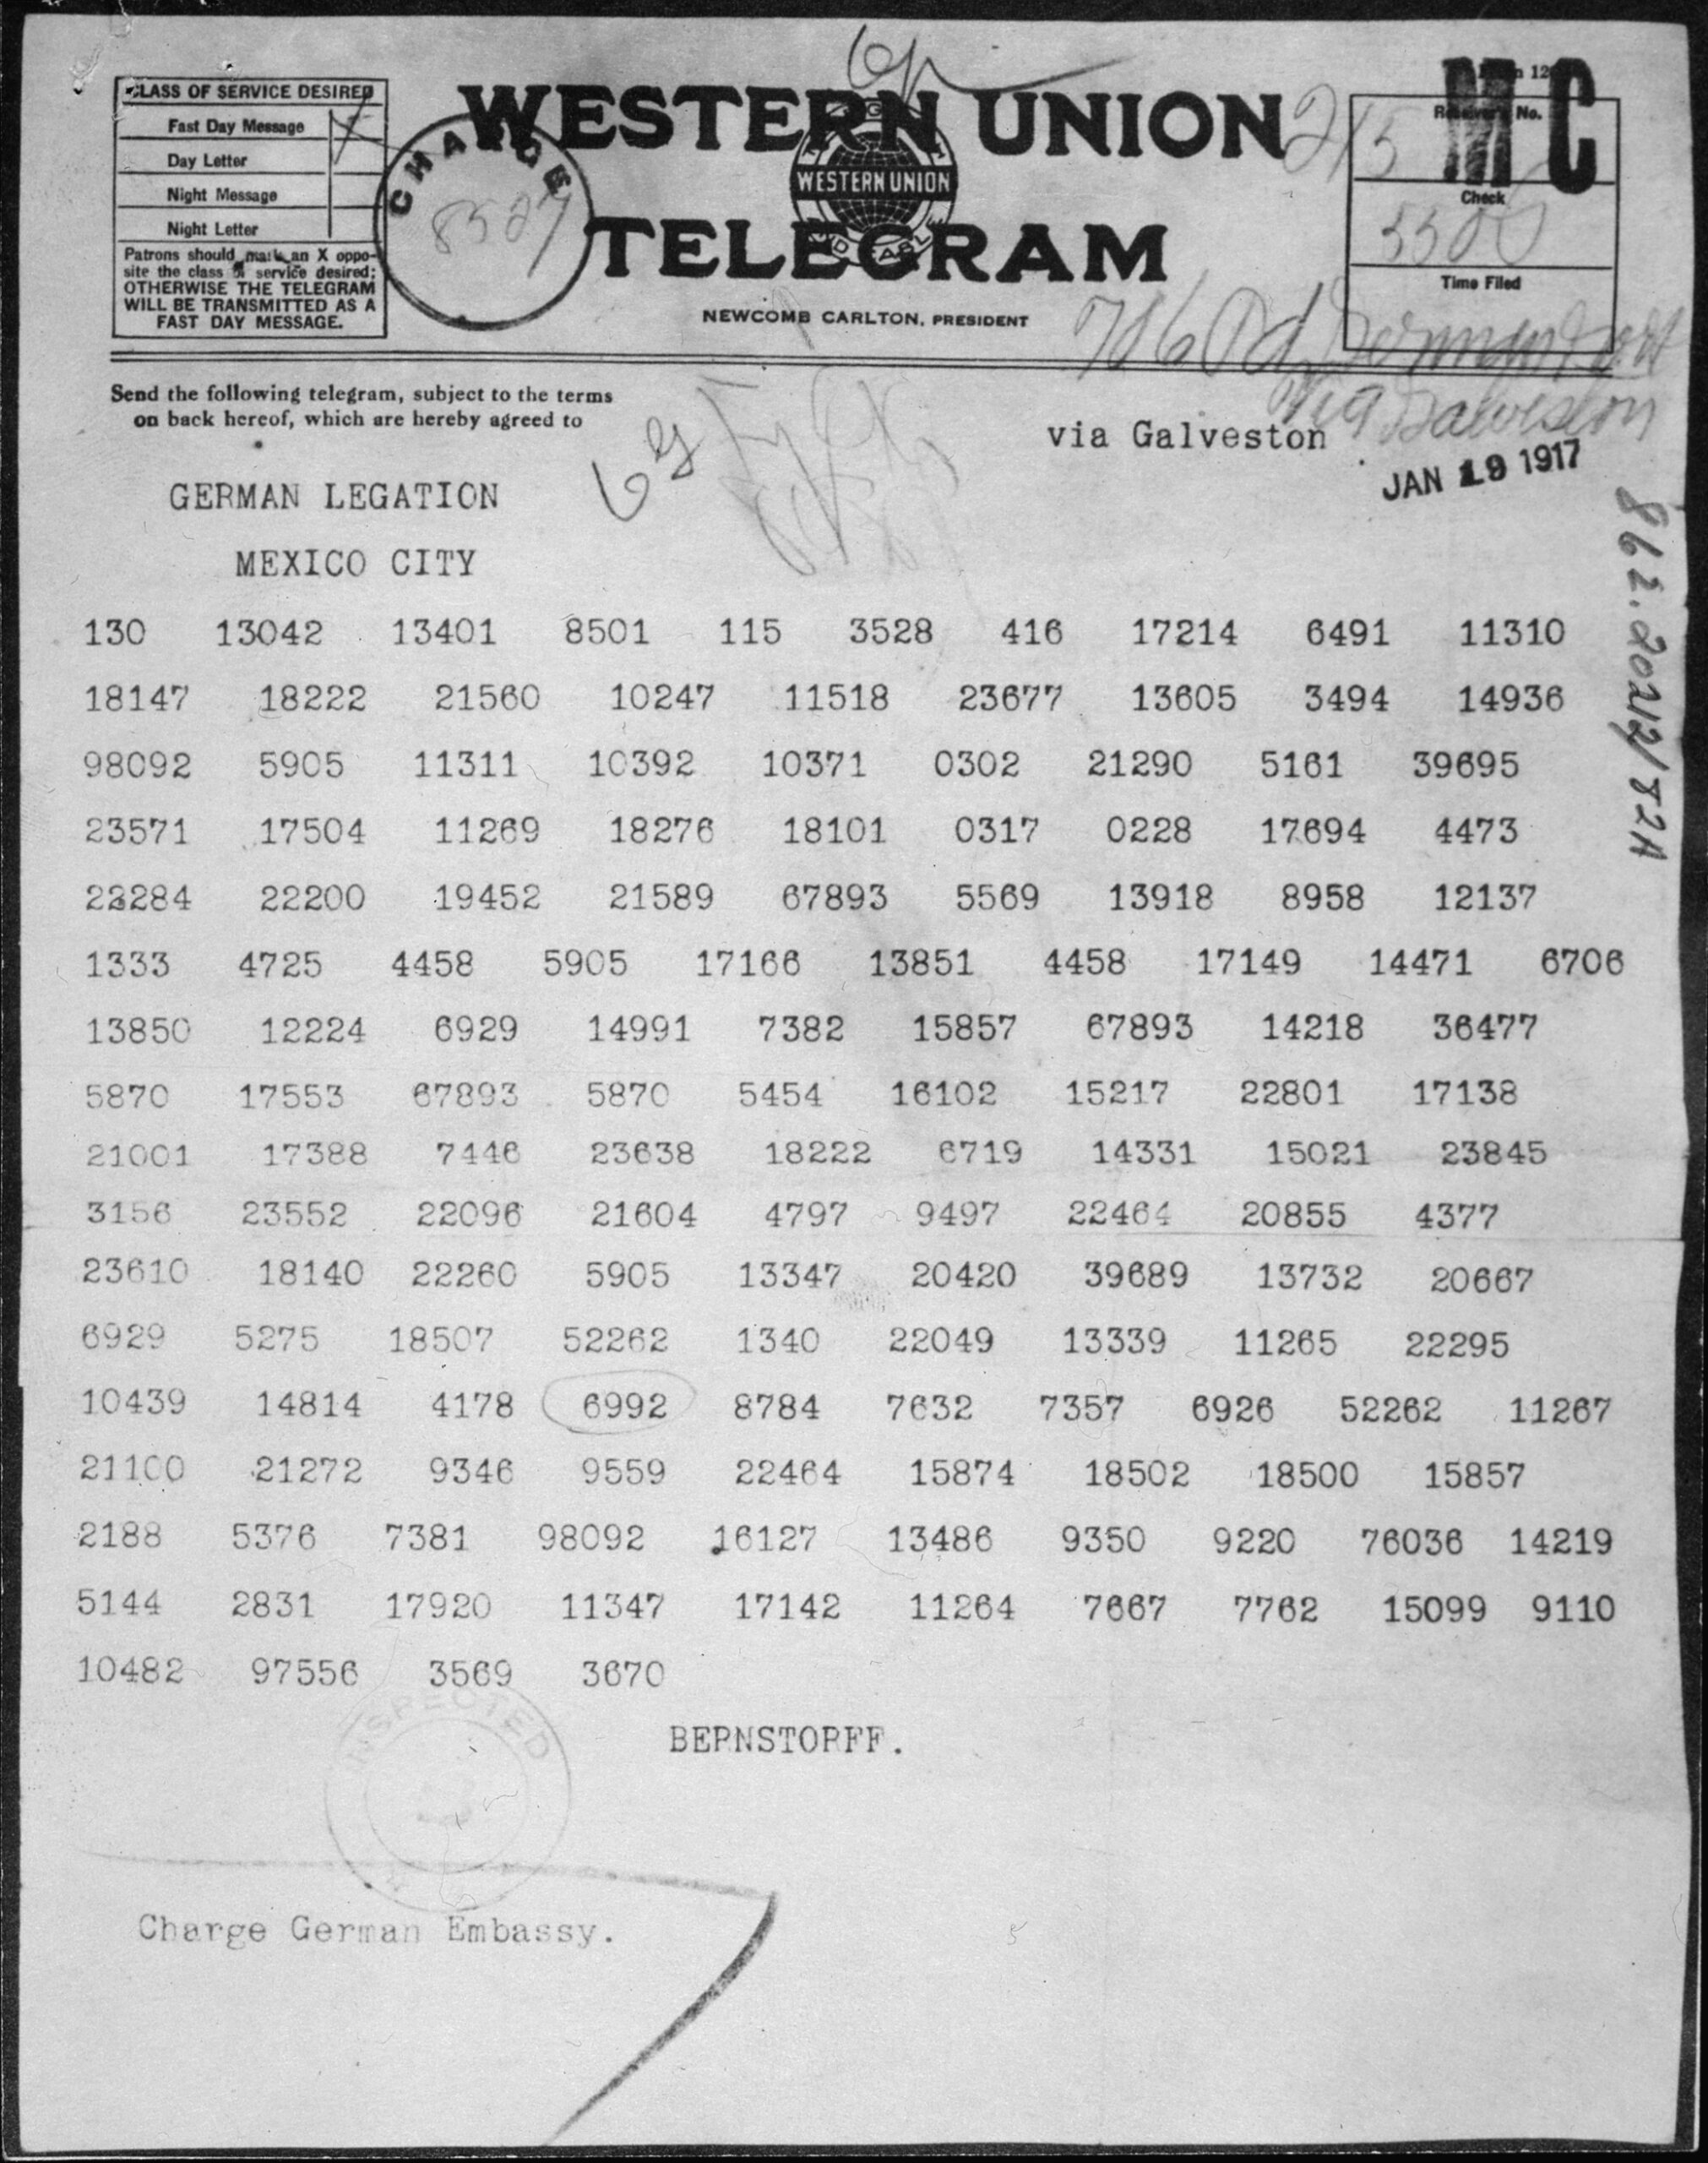 CLASS OF SERVICE DESIRED
Fast Day Message
Day Letter
Night Message
Night Letter
Patrons should mark an X oppo-
site the class of service desired;
OTHERWISE THE TELEGRAM
WILL BE TRANSMITTED AS A
FAST DAY MESSAGE.
CHARGE
WESTERN UNION
WESTERN UNION
TELEGRAM
NEWCOMB CARLTON, PRESIDENT
MC
Receiver's No.
Check
Time Filed
Send the following telegram, subject to the terms
on back hereof, which are hereby agreed to
via Galveston
via Galveston
JAN 19 1917
862.20212/82A
GERMAN LEGATION
MEXICO CITY
130 13042 13401 8501 115 3528 416 17214 6491 11310
18147 18222 21560 10247 11518 23677 13605 3494 14936
98092 5905 11311 10392 10371 0302 21290 5161 39695
23571 17504 11269 18276 18101 0317 0228 17694 4473
22284 22200 19452 21589 67893 5569 13918 8958 12137
1333 4725 4458 5905 17166 13851 4458 17149 14471 6706
13850 12224 6929 14991 7382 15857 67893 14218 36477
5870 17553 67893 5870 5454 16102 15217 22801 17138
21001 17388 7446 23638 18222 6719 14331 15021 23845
3156 23552 22096 21604 4797 9497 22464 20855 4377
23610 18140 22260 5905 13347 20420 39689 13732 20667
6929 5275 18507 52262 1340 22049 13339 11265 22295
10439 14814 4178 6992 8784 7632 7357 6926 52262 11267
21100 21272 9346 9559 22464 15874 18502 18500 15857
2188 5376 7381 98092 16127 13486 9350 9220 76036 14219
5144 2831 17920 11347 17142 11264 7667 7762 15099 9110
10482 97556 3569 3670
BERNSTORFF.
INSPECTED
Charge German Embassy.